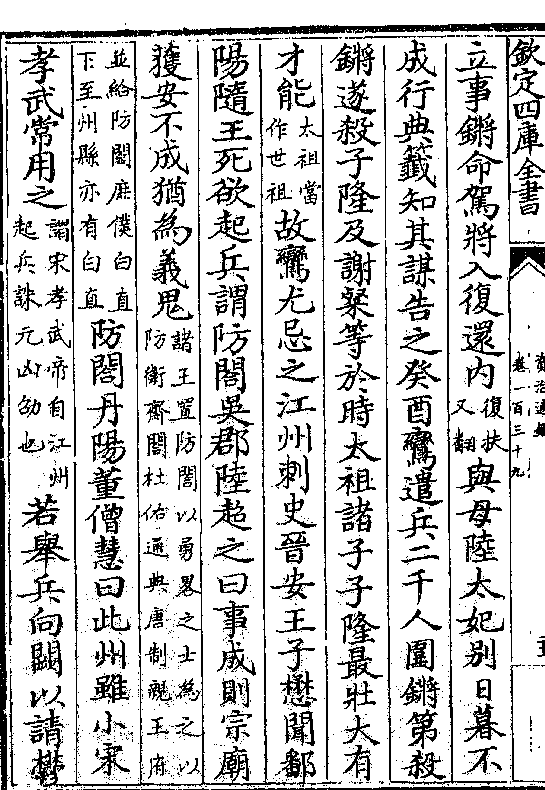 欽定四庫全書
資治通鑑
卷一百三十九
立事鏘命駕將入復還內復扶又翻與母陸太妃别日暮不
成行典籤知其謀告之癸酉鸞遣兵二千人圍鏘第殺
鏘遂殺子隆及謝粲等於時太祖諸子子隆最壯大有
才能太祖當作世祖故鸞尤忌之江州刺史晉安王子懋聞鄱
陽隨王死欲起兵謂防閤吳郡陸超之曰事成則宗廟
獲安不成猶為義鬼諸王置防閤以勇畧之士為之以防衛齋閤杜佑通典唐制親王府
並給防閤庶僕白直下至州縣亦有白直防閤丹陽董僧慧曰此州雖小宋
孝武常用之謂宋孝武帝自江州起兵誅元凶劭也若舉兵向闕以請鬱